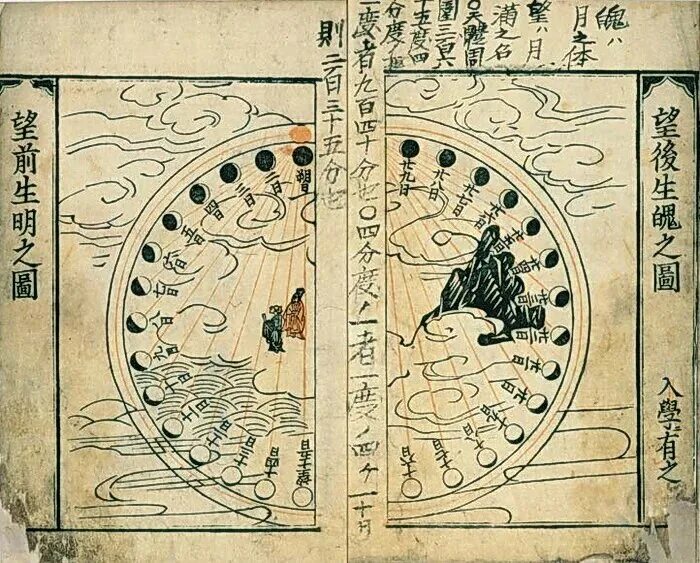 魄ハ
月之体
望ハ月
満之名
〇天體周
圍三百六
十五度四
分度ノ
一度者九百四十分也〇四分度ノ一者一度ノ四ケ一
則二百三十五分也
望後生魄之圖
入學有之
廿九日
廿八日
廿七日
廿六日
廿五日
廿四日
廿三日
廿二日
廿一日
廿日
十九日
十八日
十七日
十六日
望前生明之圖
朔日
二日
三日
四日
五日
六日
七日
八日
九日
十日
十一日
十二日
十三日
十四日
望十五日